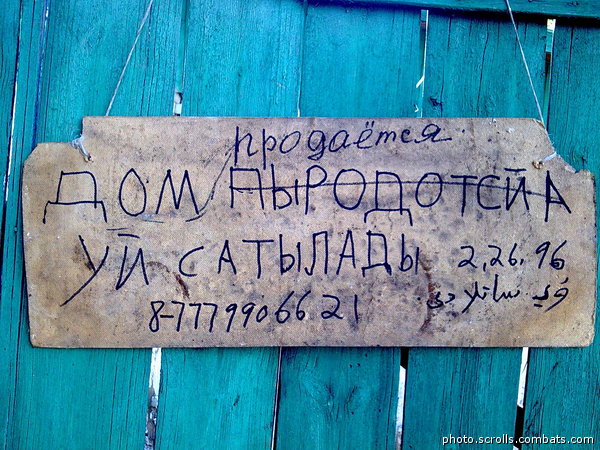 продаётся
ДОМ ПЫРОДОТСЙА
УЙ САТЫЛАДЫ 2,26,96
8-7779906621
photo.scrolls.combats.com